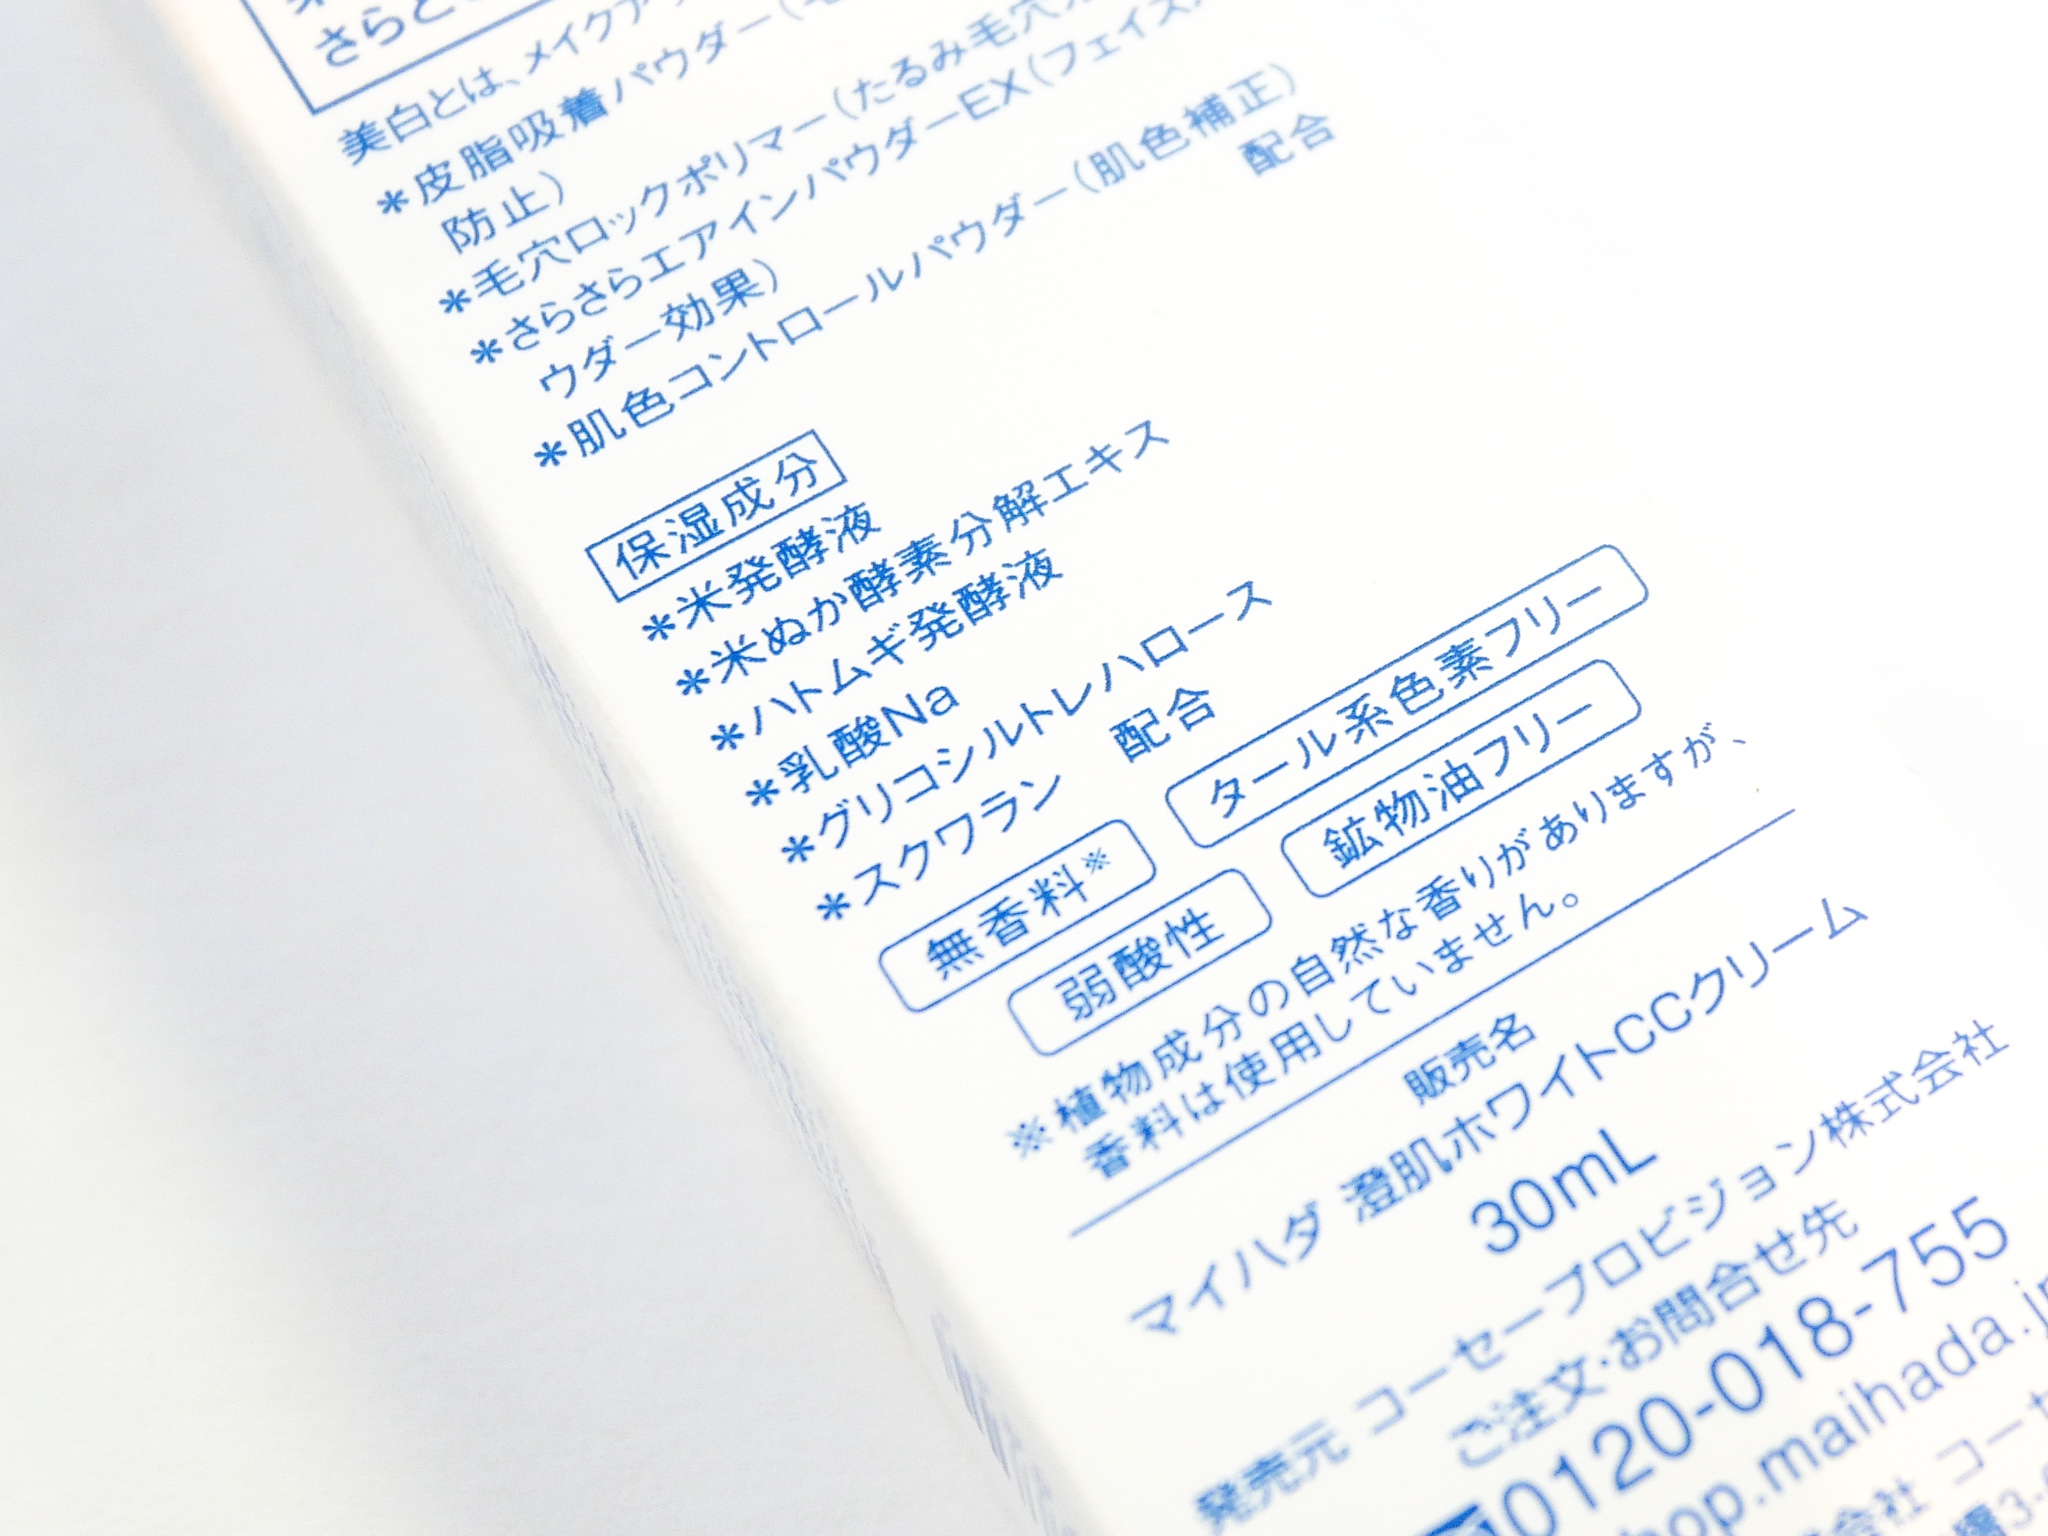 さらと
美白とは、メイクア
*皮脂吸着パウダー(毛
防止)
*毛穴ロックポリマー(たるみ毛穴
*さらさらエアインパウダーEX(フェイス
ウダー効果)
*肌色コントロールパウダー(肌色補正)
配合
保湿成分
*米発酵液
*米ぬか酵素分解エキス
*ハトムギ発酵液
*乳酸Na
*グリコシルトレハロース
*スクワラン 配合
無香料※ タール系色素フリー
弱酸性 鉱物油フリー
※植物成分の自然な香りがありますが、
香料は使用していません。
販売名
マイハダ 澄肌ホワイトCCクリーム
30mL
発売元 コーセープロビジョン株式会社
ご注文・お問合せ先
0120-018-755
hop.maihada.jp
会社 コーセ